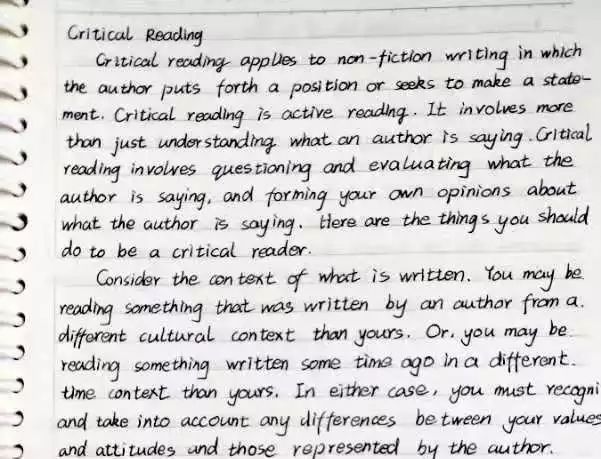 Critical Reading
Critical reading applies to non-fiction writing in which
the author puts forth a position or seeks to make a state-
ment. Critical reading is active reading. It involves more
than just understanding what an author is saying. Critical
reading involves questioning and evaluating what the
author is saying, and forming your own opinions about
what the author is saying. Here are the things you should
do to be a critical reader.
Consider the context of what is written. You may be
reading something that was written by an author from a
different cultural context than yours. Or, you may be
reading something written some time ago in a different
time context than yours. In either case, you must recogni
and take into account any differences between your values
and attitudes and those represented by the author.